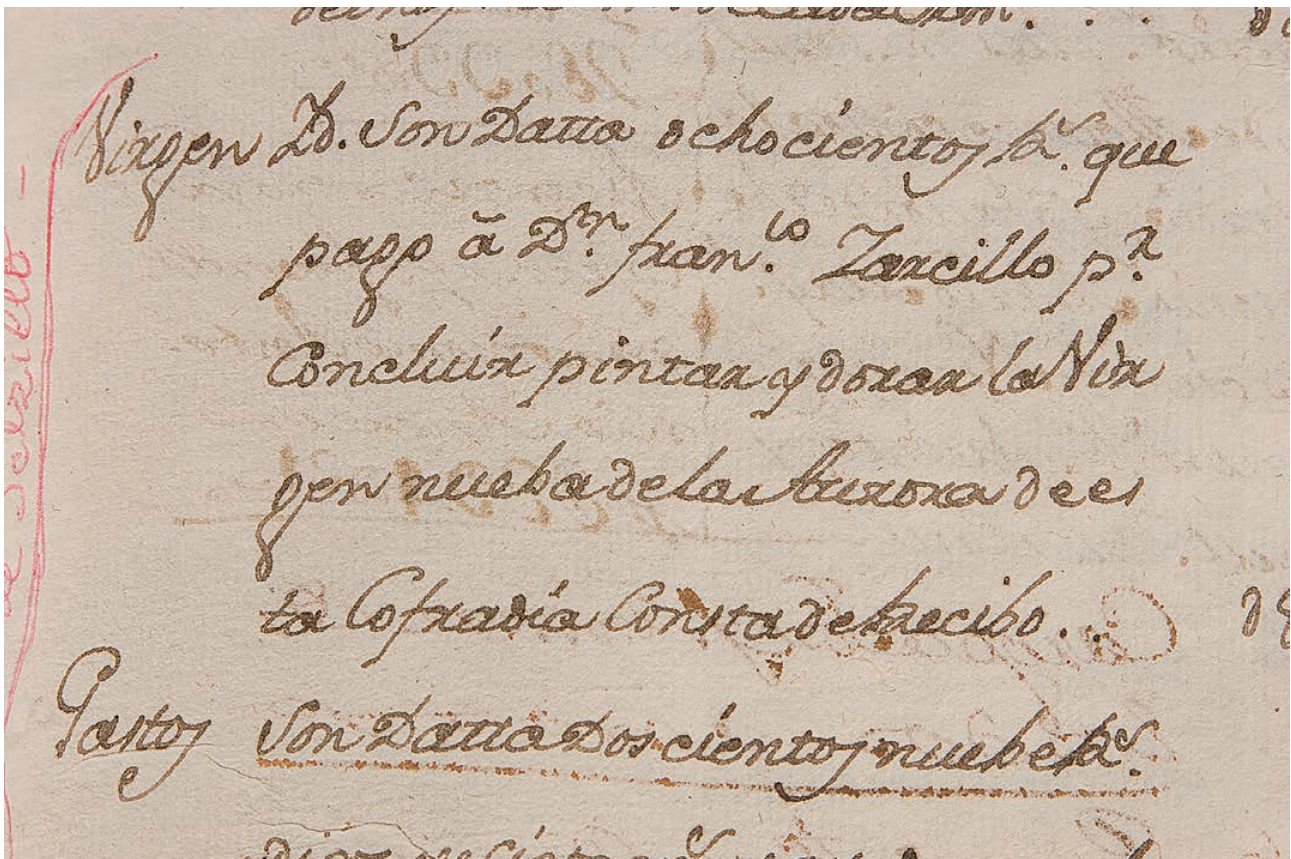 Virgen Yd. Son Datta ochocientos rs. que
pago â Dn. franco. Zarcillo pr.
Concluír pintar y dorar la Vir
gen nueba de la Aurora de es
ta Cofradía Consta de recibo . .
Gastos Son Datta Doscientos nuebe rs.